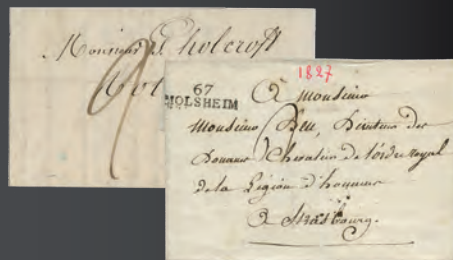 Monsieur Eholcroft
1827
67
MOLSHEIM
A Monsieur
Monsieur Beu, Directeur des
Douanes Chevalier de l'ordre Royal
de la Légion d'honneur
A Strasbourg.